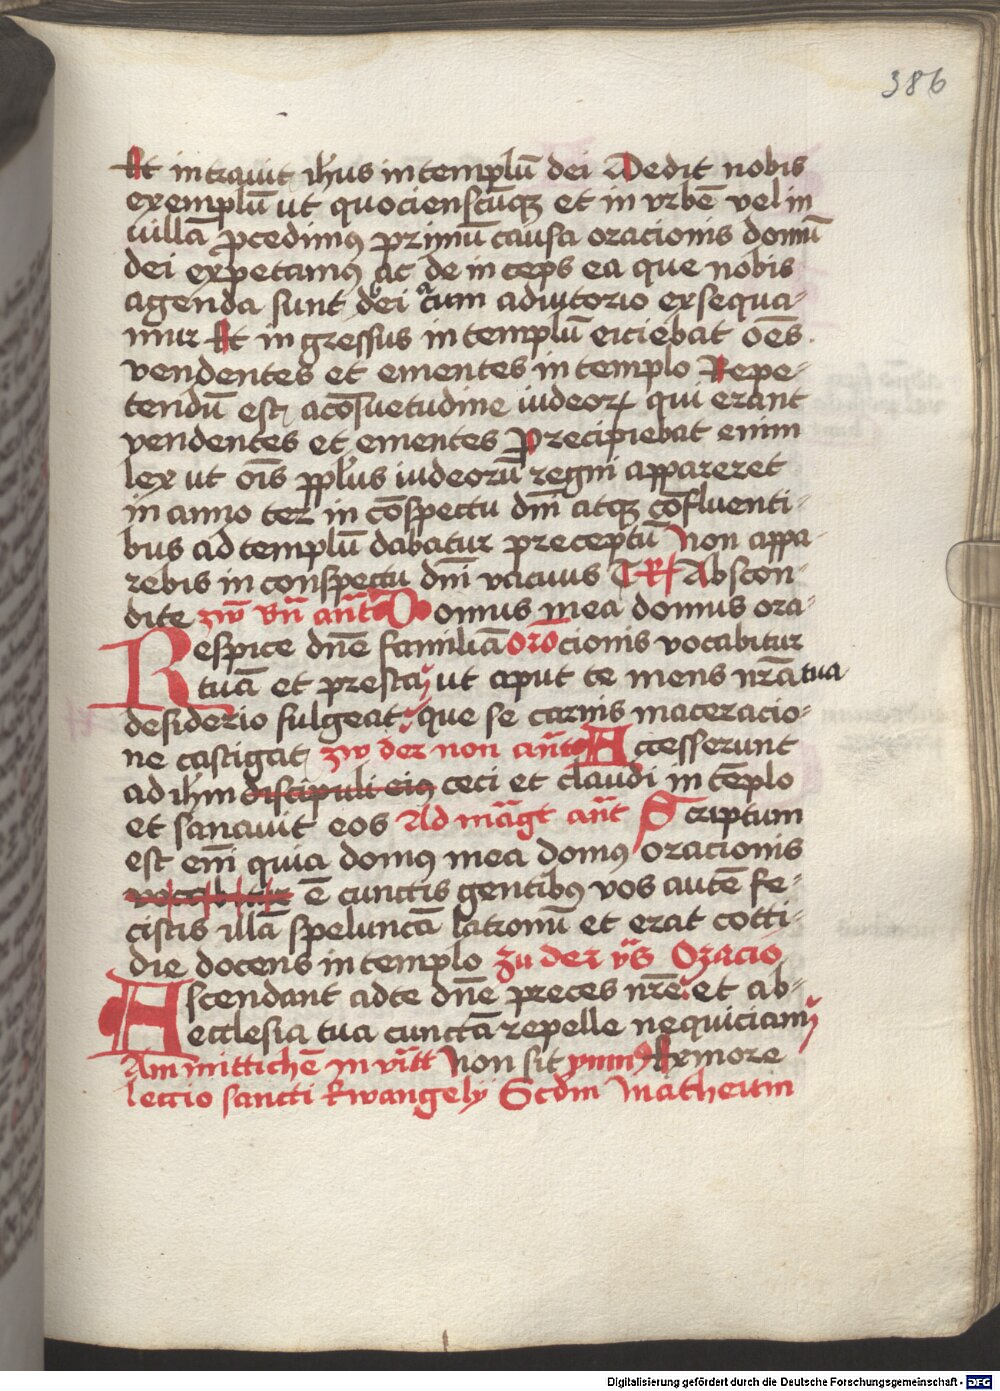 386
Et intrauit ih̄us in templū dei Dedit nobis
exemplū ut quociensctīqꝫ et in vrbē vel in
uillā pcedimꝰ primū causa oracionis domū
dei expetamꝰ ac de in ceps ea que nobis
agenda sunt dei cum adiutorio exsequa-
mur Et in gressus in templū eiciebat oēs
vendentes et ementes in templo Repe-
tendū est a cōsuetudine iudeorꝝ qui erant
vendentes et ementes Precipiebat enim
lex ut oīs ppl̄us iudeorū regni appareret
in anno ter in cōspectu dn̄i atqꝫ cōfluenti-
bus ad templū dabatur preceptū Non appa-
rebis in conspectu dn̄i vacuus Abscon-
dite zw vn̄ ant̄ Domus mea domus ora-
Respice dn̄e familiā oro cionis vocabitur
tuā et presta ut aput te mens nr̄a tua
desiderio fulgeat que se carnis maceracio-
ne castigat zw der non ant̄ Accesserunt
ad ih̄m discipuli eiꝰ ceci et claudi in tēplo
et sanauit eos Ad māgt ant̄ Scriptum
est em̄ quia domꝰ mea domꝰ oracionis
vocabitur ē cunctis gentibꝰ vos autē fe-
cistis illā speluncā latronū et erat cotti-
die docens in templo zu der vs̄ Oracio
Ascendant ad te dn̄e preces nr̄e et ab-
ecclesia tua cunctā repelle nequiciam
Am mittichē in vatt Non sit ymnꝰ Ex more
leccio sancti Ewangely Scdm̄ Matheum
Digitalisierung gefördert durch die Deutsche Forschungsgemeinschaft - DFG